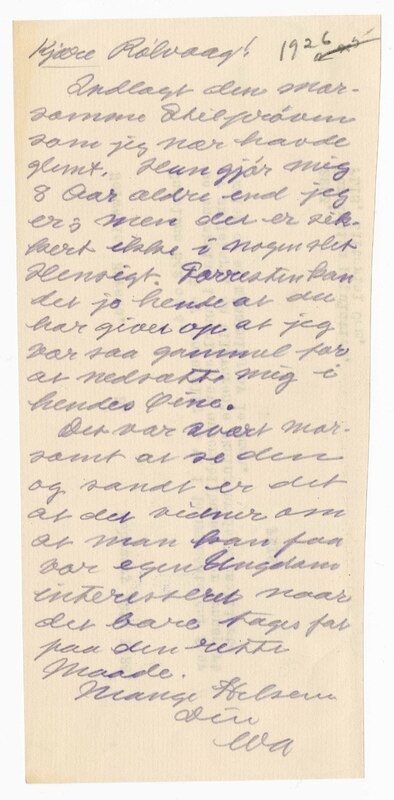 Kjære Rölvaag! 1926
Indlagt den mor-
somme Stilprøven
som jeg nær havde
glemt. Hun gjør mig
8 Aar ældre end jeg
er; men det er sik-
kert ikke i nogen slet
Hensigt. Forresten kan
det jo hende at du
har givet op at jeg
var saa gammel for
at nedsætte mig i
hendes Øine.
Det var svært mor-
somt at se den
og sandt er det
at det vidner om
at man kan faa
vor egen Ungdom
interesseret naar
det bare tages fat
paa den rette
Maade.
Mange Hilsener
Din
WA